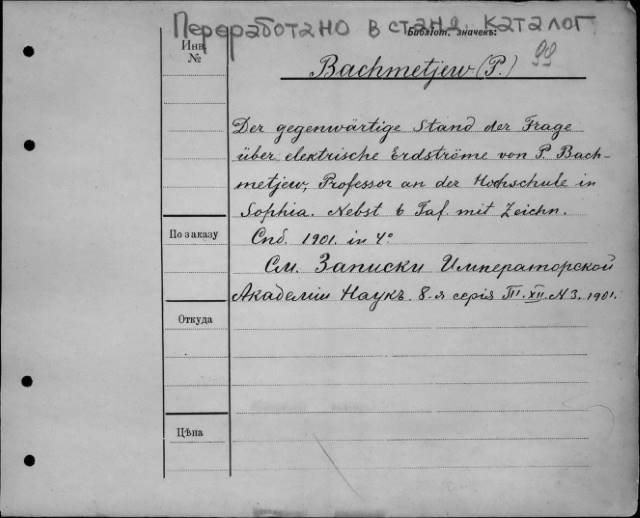 Переработано в станд. каталог
Инв. №
Библіот. значекъ:
Bachmetjew (P.) 99
Der gegenwärtige Stand der Frage
über elektrische Erdströme von P. Bach-
metjew, Professor an der Hochschule in
Sophia. Nebst 6 Taf. mit Zeichn.
По заказу
Спб. 1901. in 4°
См. Записки Императорской
Академіи Наукъ. 8-я серія Т. XII. N 3. 1901.
Откуда
Цѣна